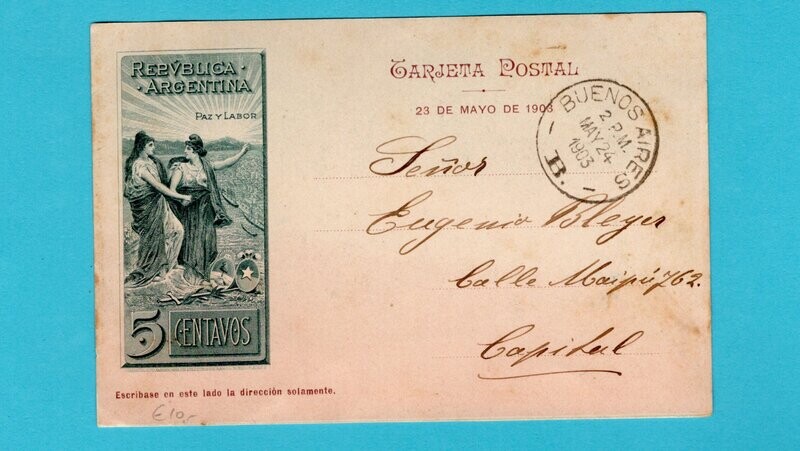 REPVBLICA
ARGENTINA
PAZ Y LABOR
5 CENTAVOS
TARJETA POSTAL
23 DE MAYO DE 1903
BUENOS AIRES
2 P.M.
MAY 24
1903
B.
Señor
Eugenio Bleyer
Calle Maipú 762.
Capital
Escríbase en este lado la dirección solamente.
€10,-